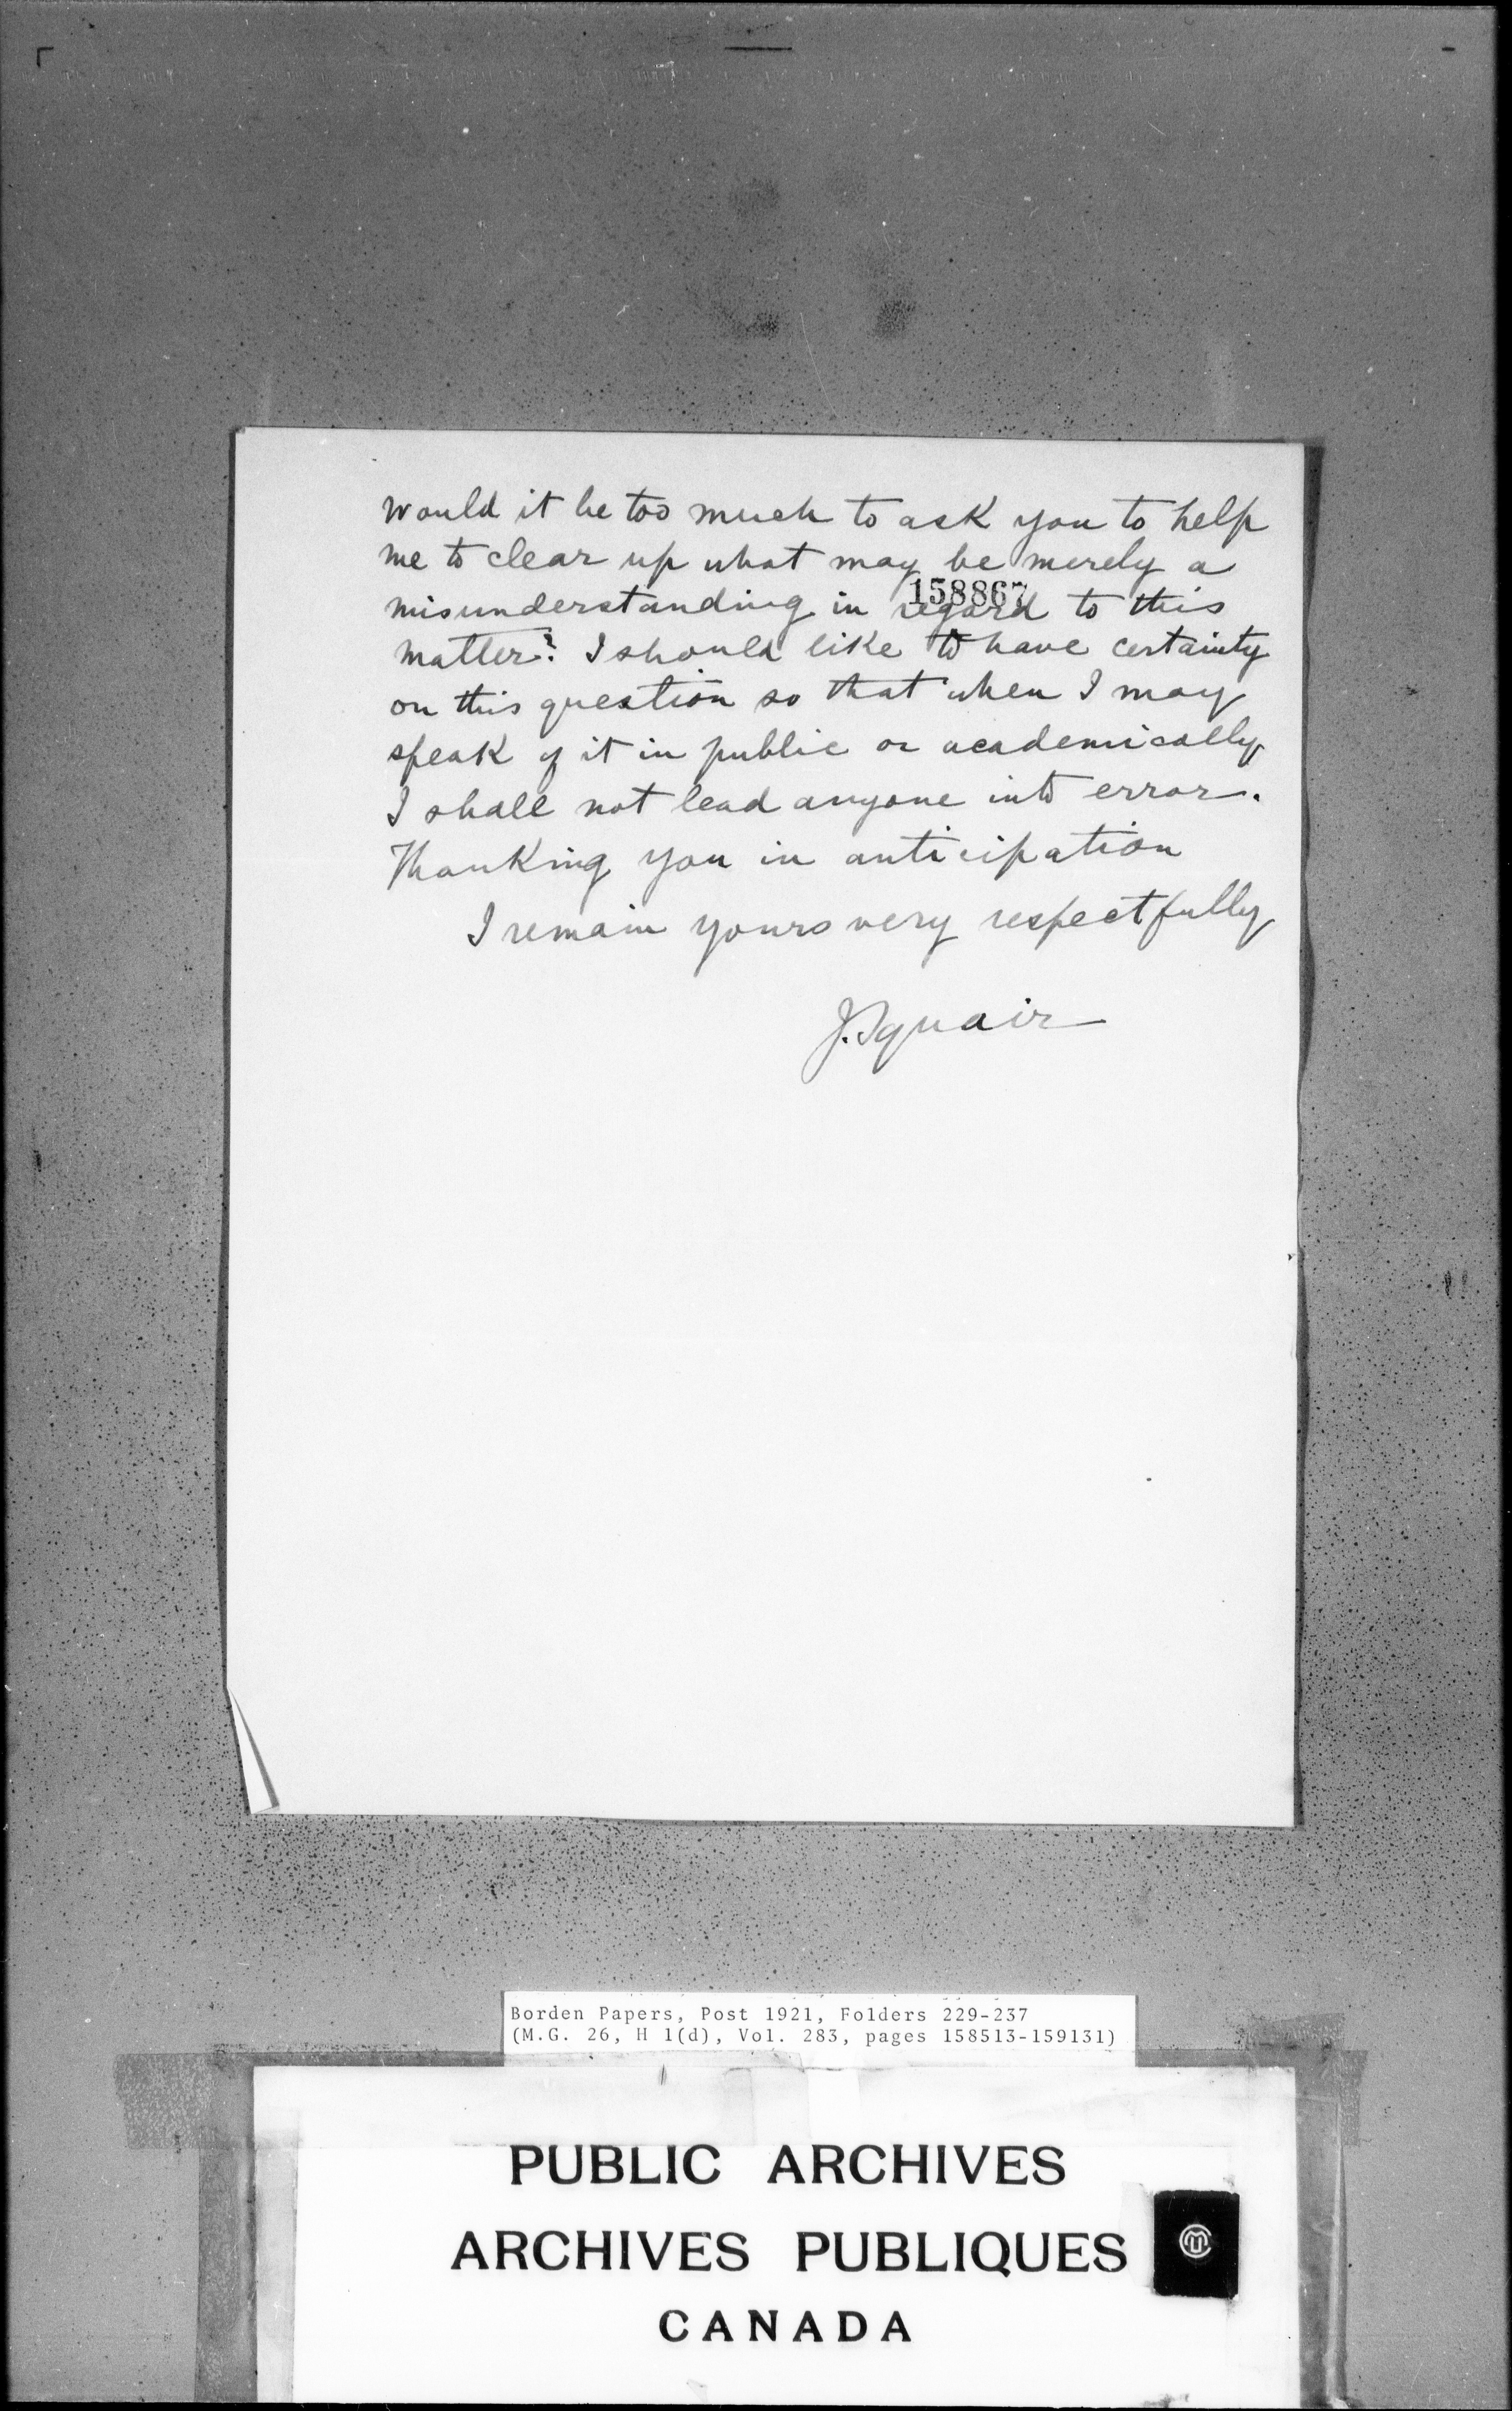 Would it be too much to ask you to help
me to clear up what may be merely a
158867
misunderstanding in regard to this
matter? I should like to have certainty
on this question so that when I may
speak of it in public or academically
I shall not lead anyone into error.
Thanking you in anticipation
I remain yours very respectfully
J. Squair
Borden Papers, Post 1921, Folders 229-237
(M.G. 26, H 1(d), Vol. 283, pages 158513-159131)
PUBLIC ARCHIVES
ARCHIVES PUBLIQUES
CANADA